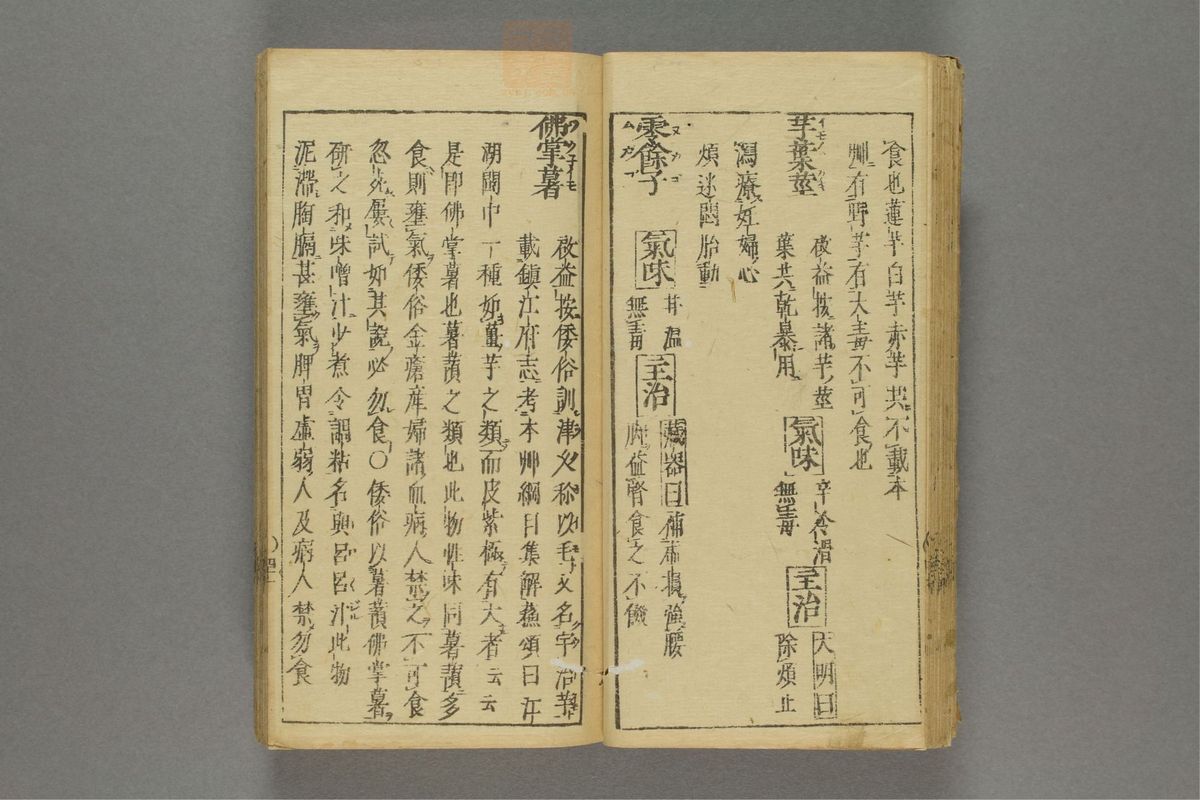 食也蓮芋白芋赤芋共不載本
艸有野芋有大毒不可食也
芋葉莖
啓益按諸芋莖
葉共乾暴用
氣味
辛冷滑
無毒
主治
大明曰
除煩止
瀉療妊婦心
煩迷悶胎動
零餘子
ヌカゴ
ムカゴ
氣味
甘温
無毒
主治
藏器曰補虚損強腰
脚益腎食之不饑
佛掌薯
ツクネイモ
啓益按倭俗訓津久称以毛又名宇治芋
載鎮江府志考本艸綱目集解蘓頌曰江
湖閩中一種如薑芋之類而皮紫極有大者云云
是即佛掌薯也薯蕷之類也此物性味同薯蕷多
食則壅氣倭俗金瘡産婦諸血病人禁之不可食
忽炎屢試如其説必勿食○倭俗以薯蕷佛掌薯
研之和味噌汁少煮令調粘名與呂呂汁此物
泥滞胸膈甚壅氣脾胃虚弱人及病人禁勿食